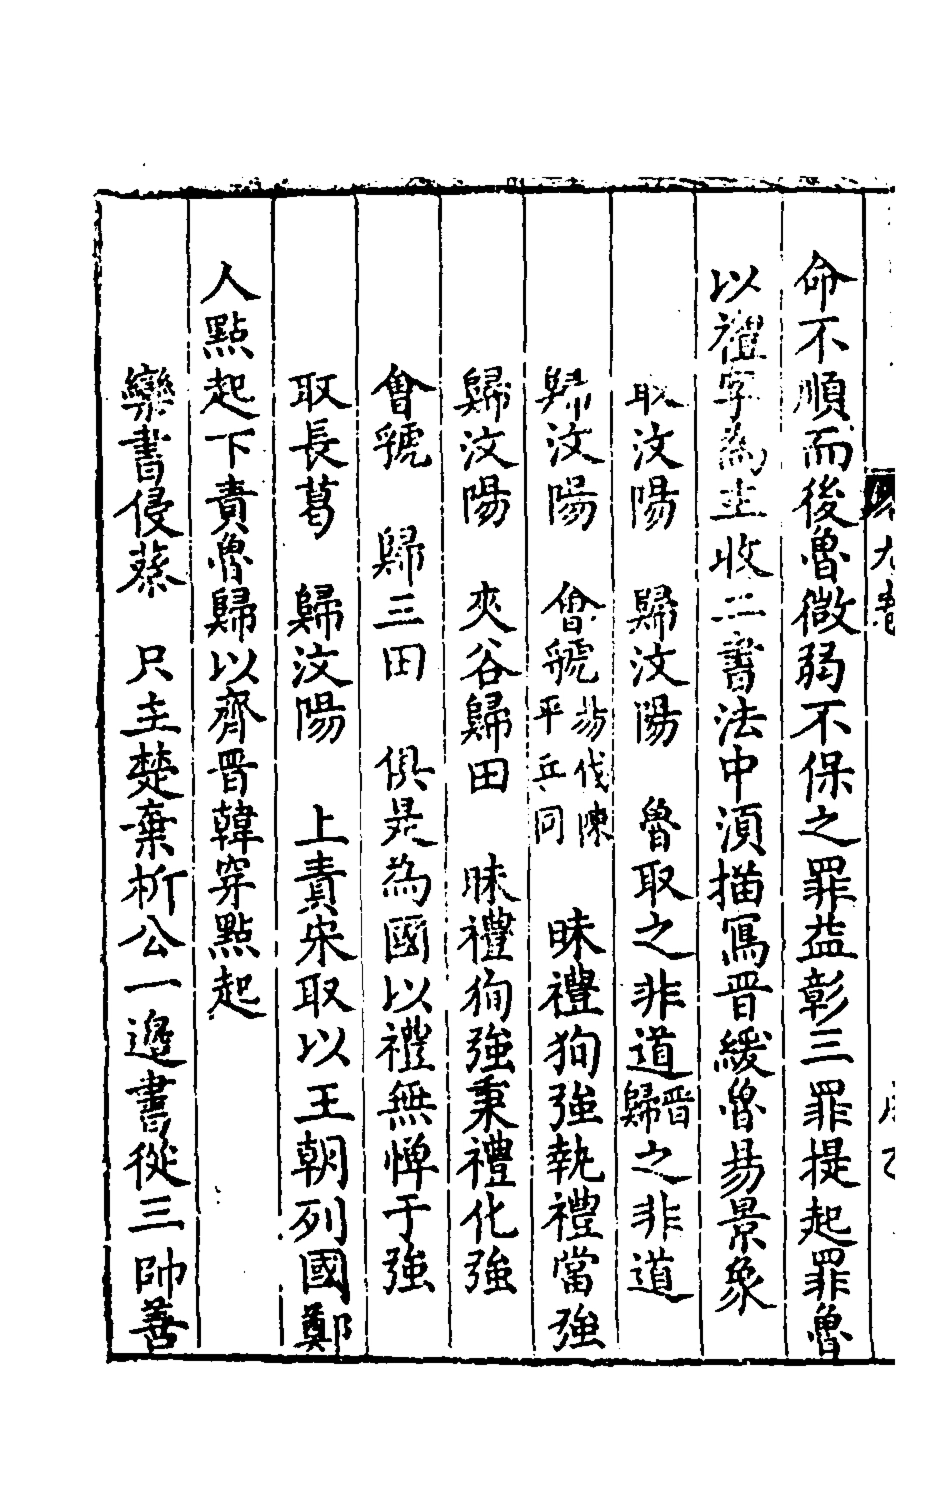 命不順而後魯微弱不保之罪益彰三罪提起罪魯
以禮字為主收二書法中須描寫晋緩魯昜景象
取汶陽　歸汶陽　魯取之非道晋歸之非道
歸汶陽　會虢　楚伐陳平丘同　昧禮狥強執禮當強
歸汶陽　夾谷歸田　昧禮狥強秉禮化強
會虢　歸三田　俱是為國以禮無憚于強
取長葛　歸汶陽　上責宋取以王朝列國鄭
人點起下責魯歸以齊晋韓穿點起
欒書侵蔡　只主楚棄析公一邉書從三帥善